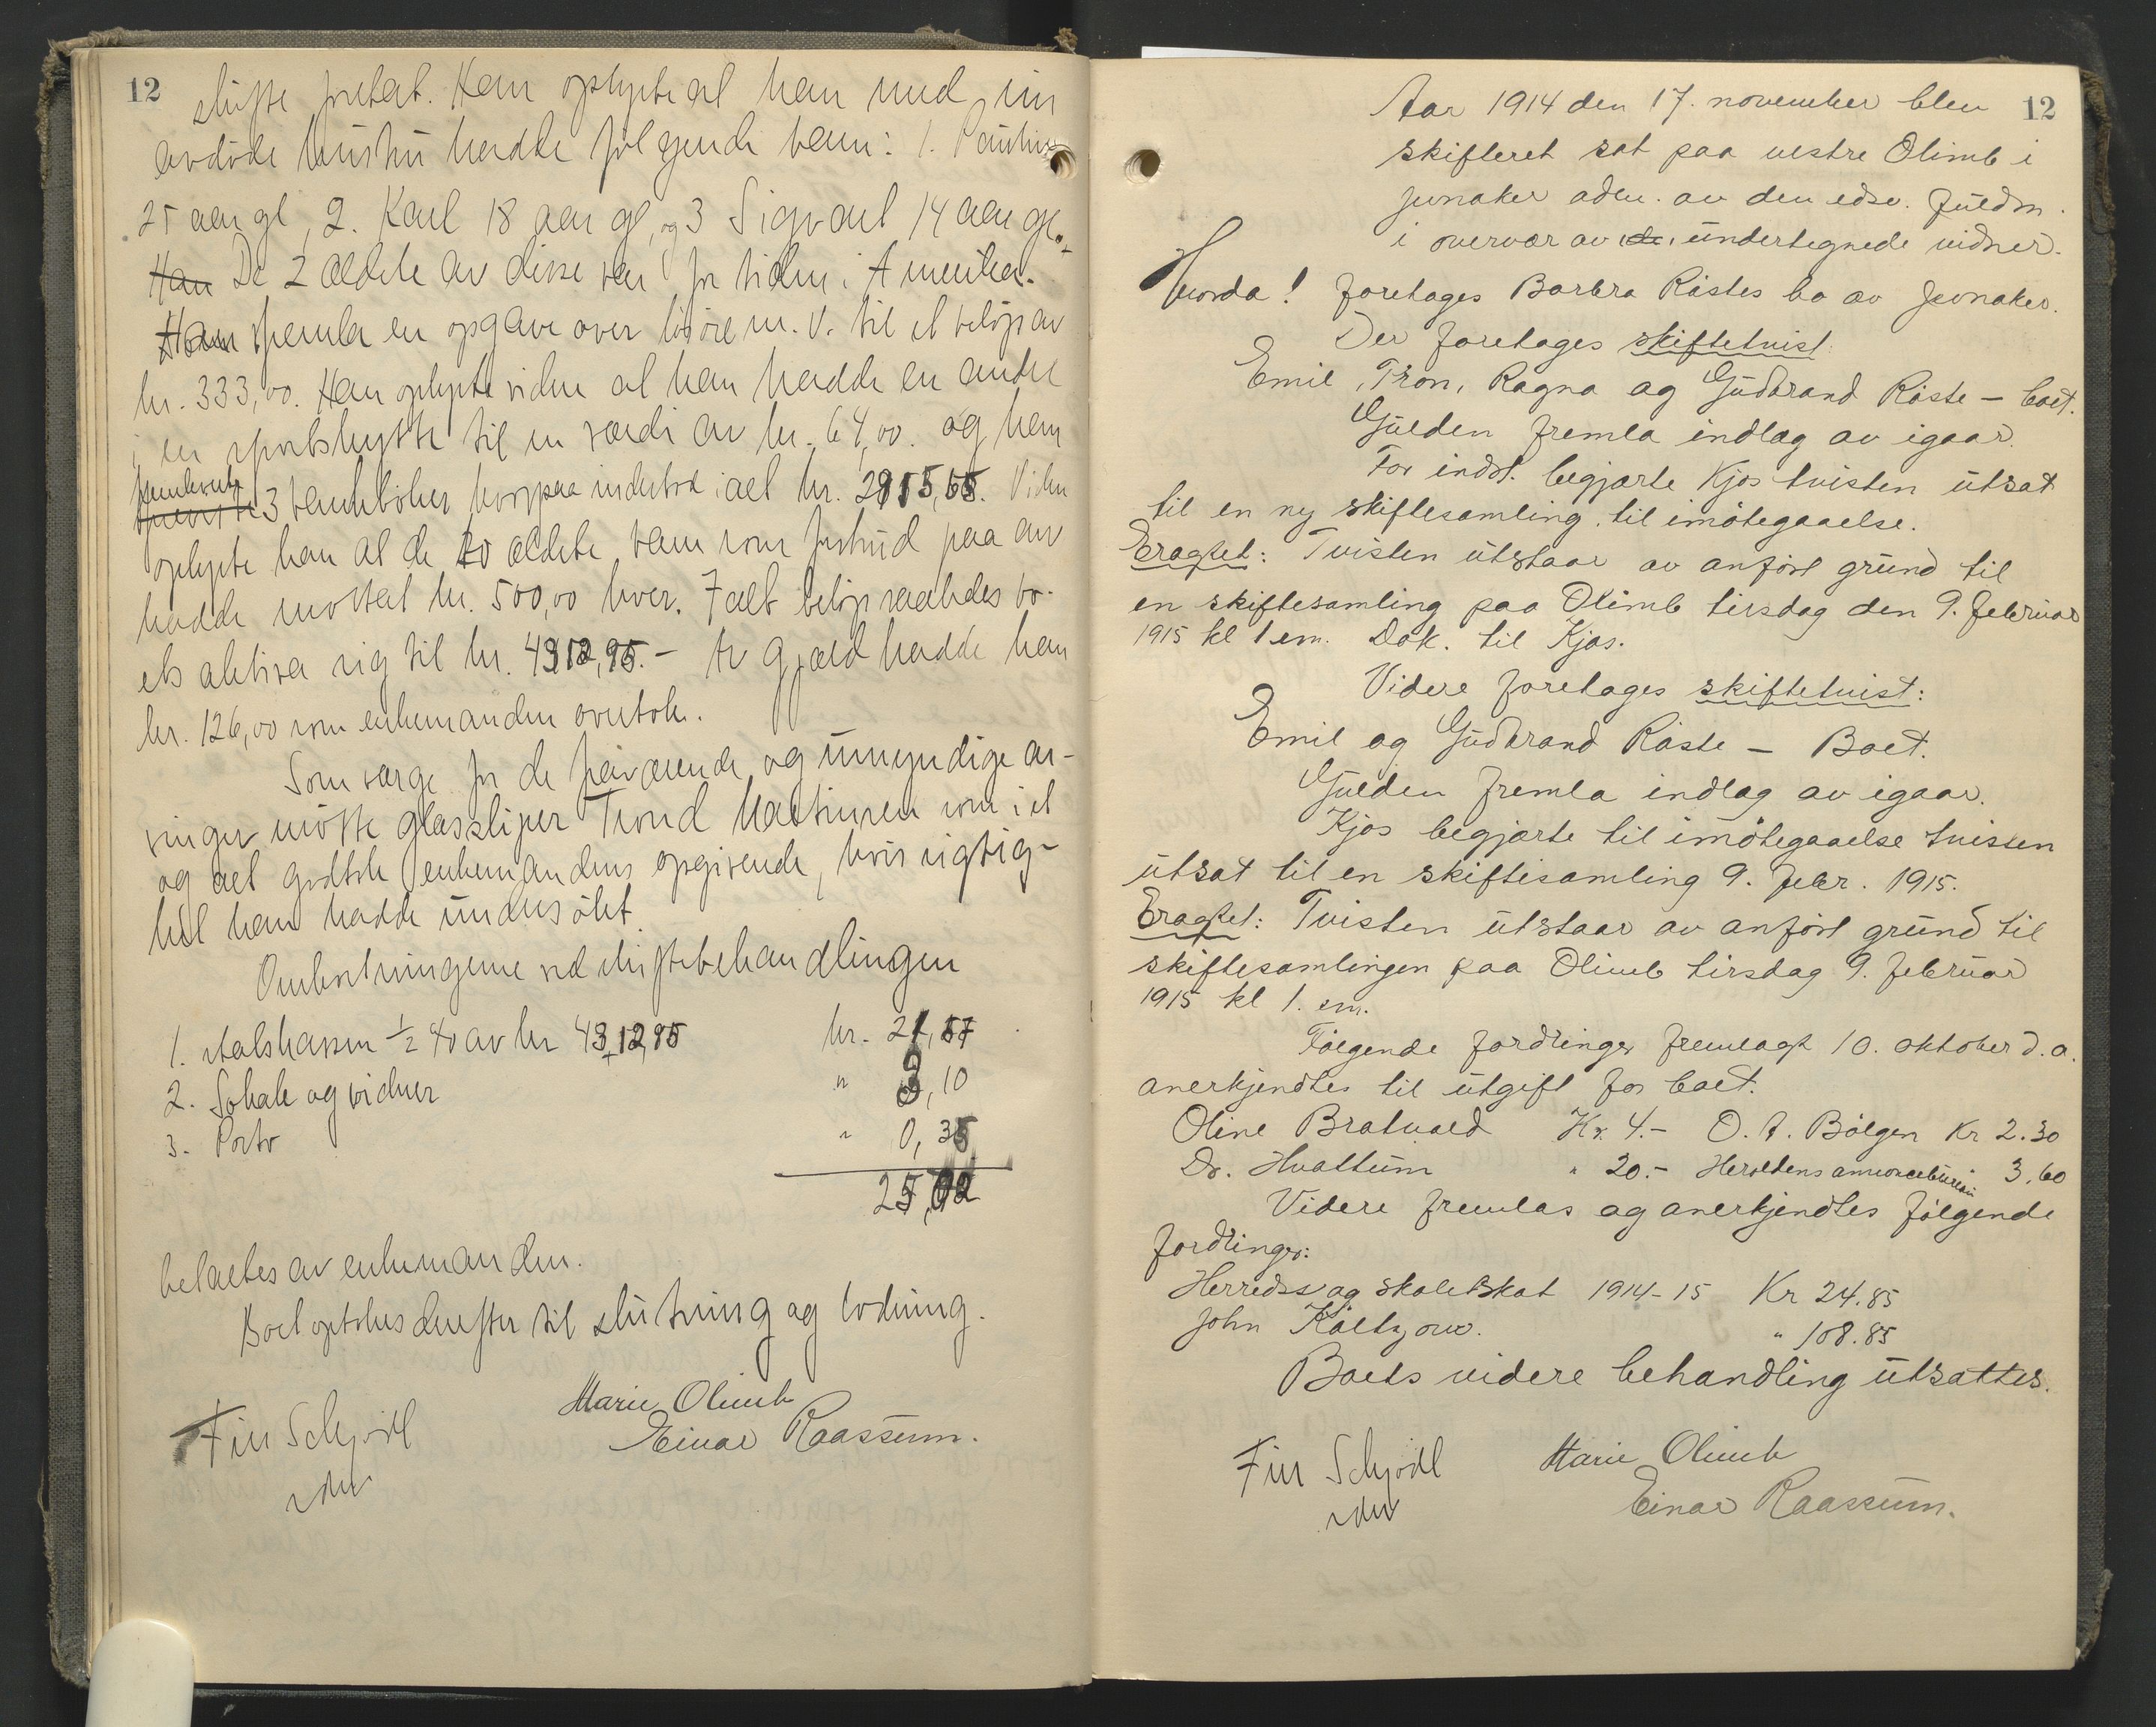 12
skifte foretat. Han oplyste at han med sin
avdøde hustru hadde følgende barn: 1. Pauline
25 aar gl, 2. Karl 18 aar gl, og 3 Sigvart 14 aar gl.
Han De 2 ældste av disse var for tiden i Amerika.
Han fremla en opgave over løsøre m. v. til et beløp av
kr. 333,00. Han oplyste videre at han hadde en andel
i en sportshytte til en værdi av kr. 64,00. og han
fremleverte 3 bankbøker hvorpaa indestod ialt kr. 2915,65. Videre
oplyste han at de to ældste barn som forskud paa arv
hadde mottat kr. 500,00 hver. Ialt beløp saaledes bo-
ets aktiva sig til kr. 4312,95.- Av gjæld hadde han
kr. 126,00 som enkemanden overtok.
Som værge for de fraværende og umyndige ar-
vinger møtte glassliper Trond Martinsen som i et
og alt godtok enkemandens opgivende, hvis rigtig-
het han hadde undersøkt.
Omkostningerne ved skiftebehandlingen
1. statskassen ½ % av kr 4312,95 kr. 21,57
2. Lokale og vidner " 3,10
3. Porto " 0,35
25,02
betaltes av enkemanden.
Boet optokes derefter til slutning og lodning.
Marie Olimb
Fin Schjødt Einar Raassum.
12
Aar 1914 den 17. november blev
skifteret sat paa vestre Olimb i
Jevnaker adm. av den edsv. fuldm.
i overvær av de undertegnede vidner.
Hvorda! foretages Barbra Råstes bo av Jevnaker.
Der foretages skiftetvist:
Emil, Tron, Ragna og Gudbrand Råste - boet.
Gulden fremla indlæg av igaar.
For indst. begjærte Kjos tvisten utsat
til en ny skiftesamling til imøtegaaelse.
Eragtet: Tvisten utstaar av anført grund til
en skiftesamling paa Olimb tirsdag den 9. februar
1915 kl 1 em. Dok. til Kjos.
Videre foretages skiftetvist:
Emil og Gudbrand Råste - Boet.
Gulden fremla indlæg av igaar.
Kjos begjærte til imøtegaaelse tvisten
utsat til en skiftesamling 9. febr. 1915.
Eragtet: Tvisten utstaar av anført grund til
skiftesamlingen paa Olimb tirsdag 9. februar
1915 kl 1. em.
Følgende fordringer fremlagt 10. oktober d. a.
anerkjendtes til utgift for boet.
Oline Bratvold Kr. 4.- O. A. Bølgen Kr 2.30
Dr. Hvattum " 20.- Heroldens annoncebureau 3.60
Videre fremlas og anerkjendtes følgende
fordringer:
Herreds og skoleskat 1914-15 Kr 24.85
John Koltzow. " 108.85
Boets videre behandling utsattes.
Fin Schjødt Marie Olimb
Einar Raassum.